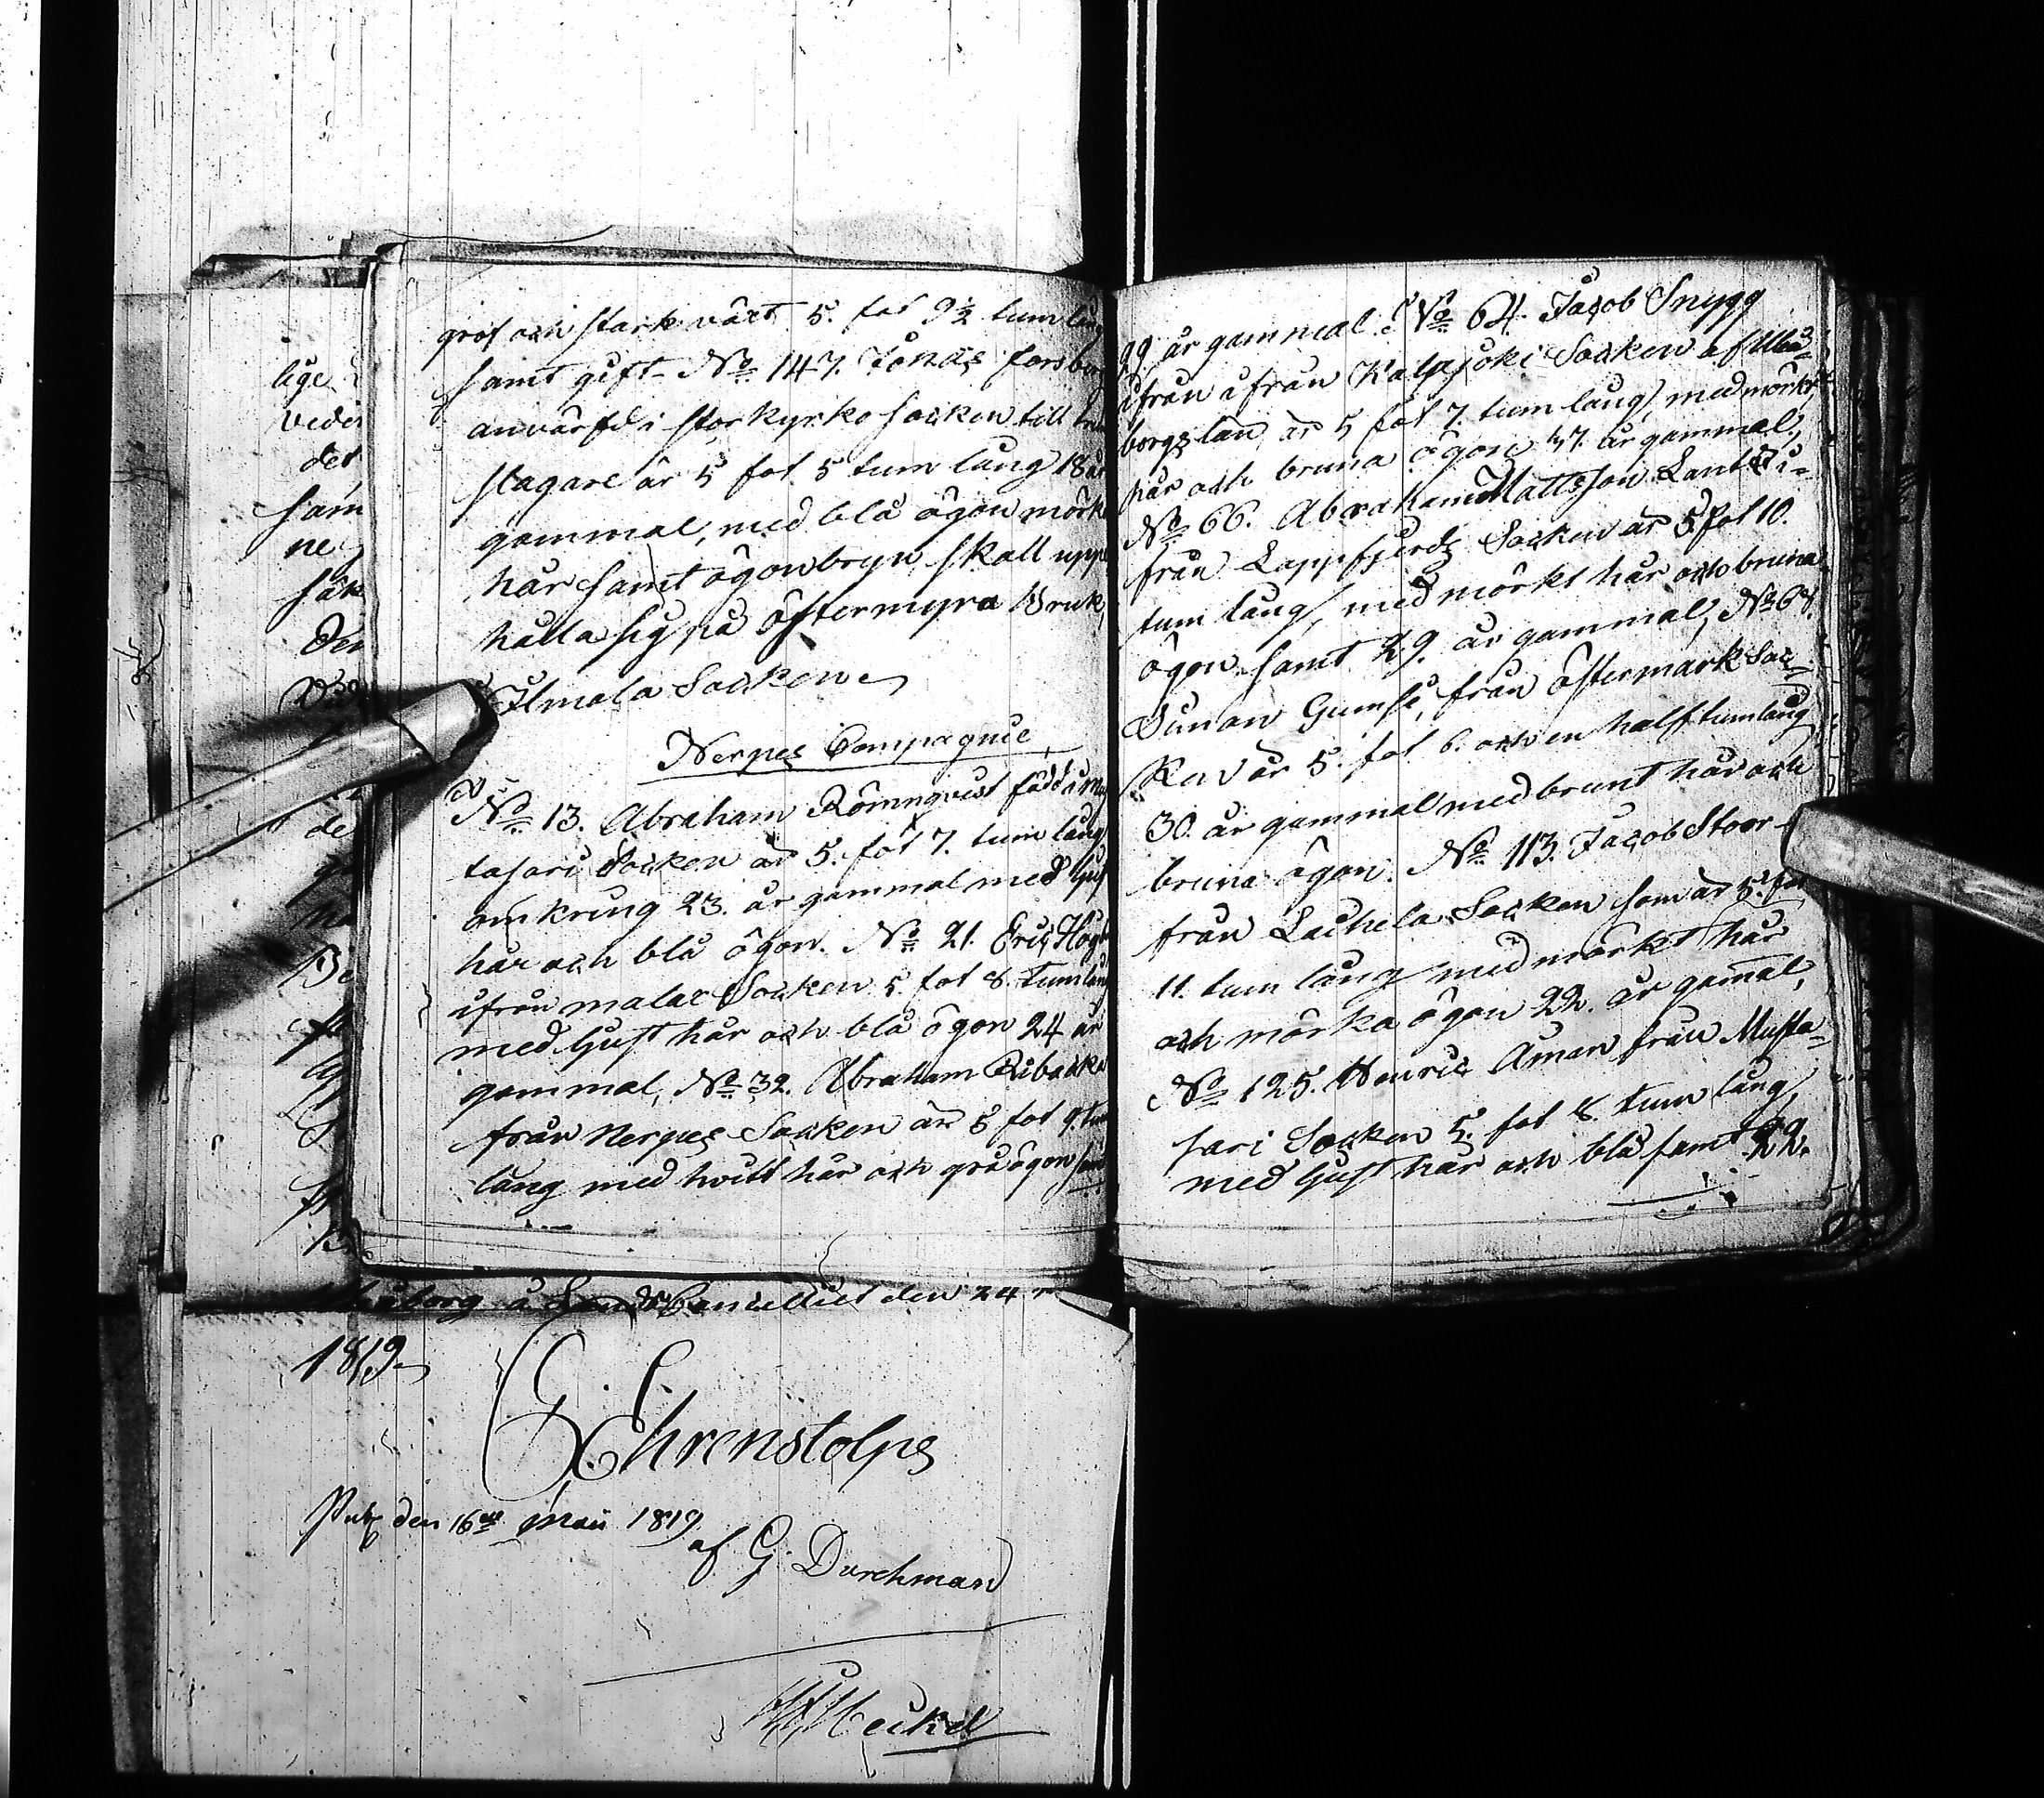 grof och stark växt 5. fot 9½ tum lång
samt gift. No 147. Jonas Forsberg
anvärfd i storkyrko socken till
slagare är 5 fot 5 tum lång 18 år
gammal, med blå ögon mörk
hår samt ögonbryn, skall upp
hålla sig på östermyra Bruk,
Ilmola Socken
Nerpes Compagnie
No 13. Abraham Römnqvist född i Mu
tasari Socken är 5. fot 7. tum lång
omkring 23. år gammal med ljus
hår och blå ögon. No 21. Eric Hög
ifrån malax Socken 5 fot 8. tum lång
med ljust hår och blå ögon 24 år
gammal, No 32. Abraham Ribacka
från Nerpes Socken är 5 fot 9. tum
lång med hvitt hår och grå ögon samt
29 år gammal. No 64. Jacob Snygg
ifrån ifrån Kalajoki Socken af Uleå-
borgs län, är 5 fot 7. tum lång, med mörkt
hår och bruna ögon 47. år gammal,
No 66. Abraham Mattsson Lant i-
från Lappfjerds Socken är 5 fot 10.
tum lång, med mörkt hår och bruna
ögon samt 29. år gammal, No 68.
Simon Gumse, från östermark Soc-
ken är 5. fot 6. och en half tum lång
30. år gammal med brunt hår och
bruna ögon. No 113. Jacob Stoor
från Laihela Socken som är 5. fot
11. tum lång med mörkt hår
och mörka ögon 22. år gamal,
No 125. Henric Åman från Musta-
sari Socken 5. fot 8. tum lång,
med ljust hår och blå samt 22.
lige
det
sam
ne
Den
de
åborg å Lands Cancelliet den 24
1819.
G. Ehrenstolpe
Publ. den 16de Maii 1819
af G. Durchman